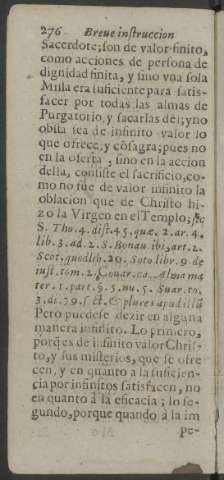 276 Breue instruccion
Sacerdote; son de valor finito,
como acciones de persona de
dignidad finita, y sino vna sola
Missa era suficiente para satis-
facer por todas las almas de
Purgatorio, y sacarlas del; y no
obsta sea de infinito valor lo
que ofrece, y cõsagra; pues no
en la oferta, sino en la accion
della, consiste el sacrificio, co-
mo no fue de valor infinito la
oblacion que de Christo hi-
zo la Virgen en el Templo;
S. Tho. 4. dist. 45. quæ. 2. ar. 4.
lib. 3. ad. 2. S. Bonau. ibi, art. 2.
Scot. quodlib. 20. Soto lib. 9. de
iust. tom. 2. Couar. ca. Alma ma
ter. 1. part. §. 5. nu. 5. Suar. to.
3. di. 79. s. & plures apud illũ
Pero puedese dezir en alguna
manera infinito. Lo primero,
porq̃ es de infinito valor Chris-
to, y sus misterios, que se ofre
cen, y en quanto a la suficien-
cia por infinitos satisfacen, no
en quanto â la eficacia; lo se-
gundo, porque quando â la im
pe-